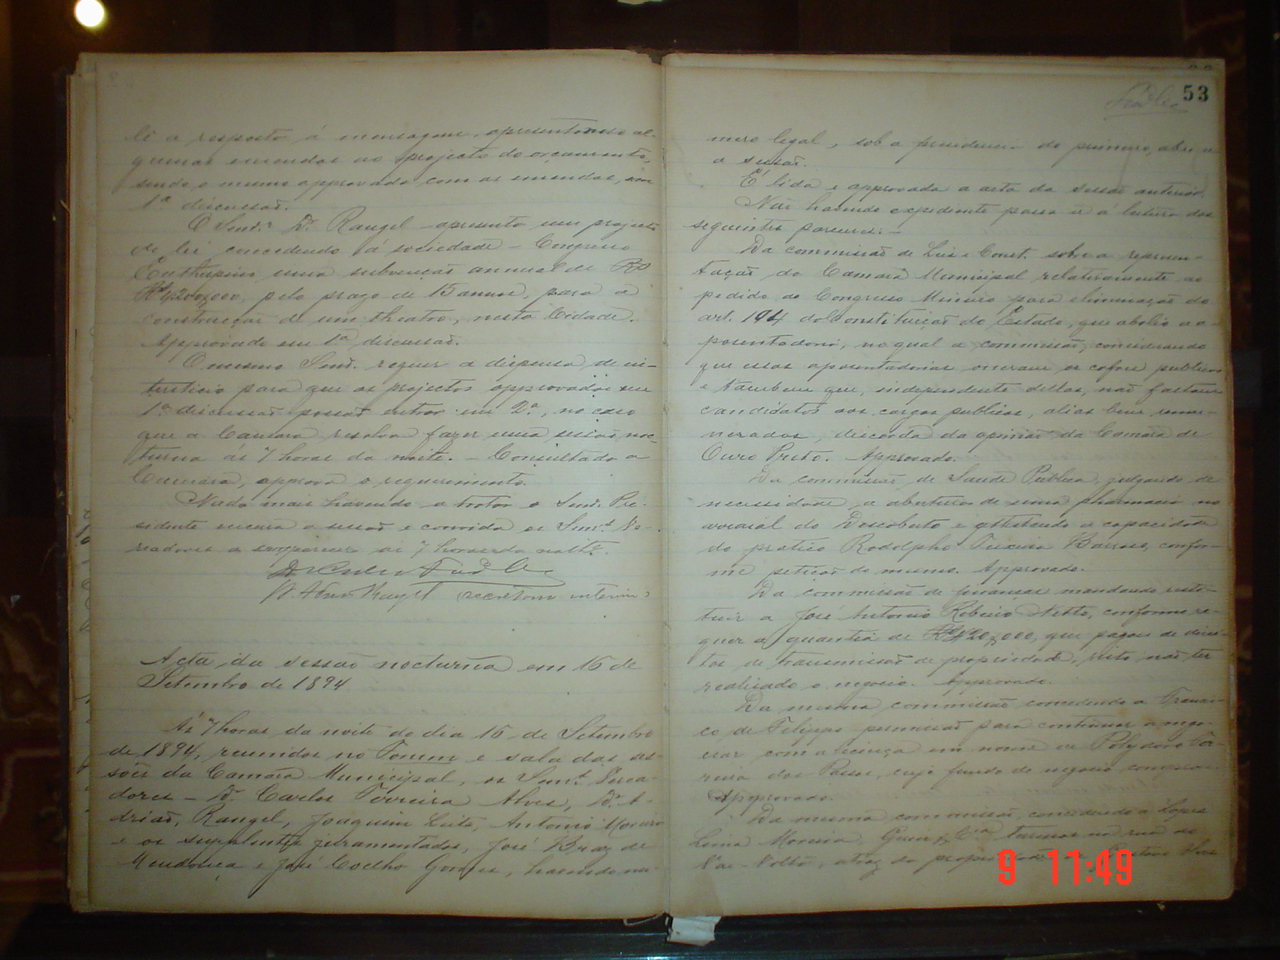 lê a resposta á mensagem, apresentando al-
gumas emendas ao projecto do orçamento,
sendo o mesmo approvado com as emendas, em
1ª discussão.
O Snd.r Dr. Rangel apresenta um projecto
de lei concedendo á sociedade - Congresso
uma subvenção annual de R$
200,000, pelo prazo de 15 annos, para a
construcção de um theatro, nesta Cidade.
Approvado em 1ª discussão.
O mesmo Snd. requer a dispensa de in-
tersticio para que os projectos approvados em
1ª discussão possão entrar em 2ª, no caso
que a Camara resolva fazer uma sessão noc-
turna as 7 horas da noite. - Consultada a
Camara, approva o requerimento.
Nada mais havendo a tratar o Snd. Pre-
sidente encerra a sessão e convida os Snd.s Ve-
readores a comparecer ás 7 horas da noite.
secretario interino
Acta da sessão nocturna em 16 de
Setembro de 1894
Ás 7 horas da noite do dia 16 de Setembro
de 1894, reunidos no Forum e sala das ses-
sões da Camara Municipal, os Snd.s Verea-
dores - Dr. Carlos Ferreira Alves, Dr. A-
drião, Rangel, Joaquim Leite, Antonio Moreira
e os supplentes juramentados, José Braz de
Mendonça e José Coelho Gomes, havendo nu-
53
mero legal, sob a presidencia do primeiro, abre-se
a sessão.
É lida e approvada a acta da sessão anterior.
Não havendo expediente passa-se á leitura dos
seguintes pareceres: -
Da commissão de Leis e Const. sobre a represen-
tação da Camara Municipal relativamente ao
pedido ao Congresso Mineiro para eliminação do
art. 104 da Constituição do Estado, que abolio a a-
posentadoria, no qual a commissão, considerando
que essas aposentadorias oneram os cofres publicos
e tambem que, independente dellas, não faltam
candidatos aos cargos publicos, alias bem remu-
nerados, discorda da opinião da Camara de
Ouro Preto. Approvado.
Da commissão de Saude Publica, julgando de
necessidade a abertura de uma pharmacia no
arraial do Descoberto e attestando a capacidade
do pratico Rodolpho Teixeira Barroso, confor-
me petição do mesmo. Approvado.
Da commissão de finanças mandando resti-
tuir a José Antonio Ribeiro Netto, conforme re-
quer a quantia de 120,000, que pagou de direi-
tos de transmissão de propriedade, visto não ter
realizado o negocio. Approvado.
Da mesma commissão concedendo a Francis-
co de Felippo permissão para continuar a nego-
ciar com a licença em nome de Polydoro Fer-
reira dos Passos, cujo fundo de negocio comprou.
Approvado.
Da mesma commissão, concedendo a Lopes
Lima Moreira, & C.ª terreno na rua do
Vae-Volta, atraz da propriedade
9 11:49